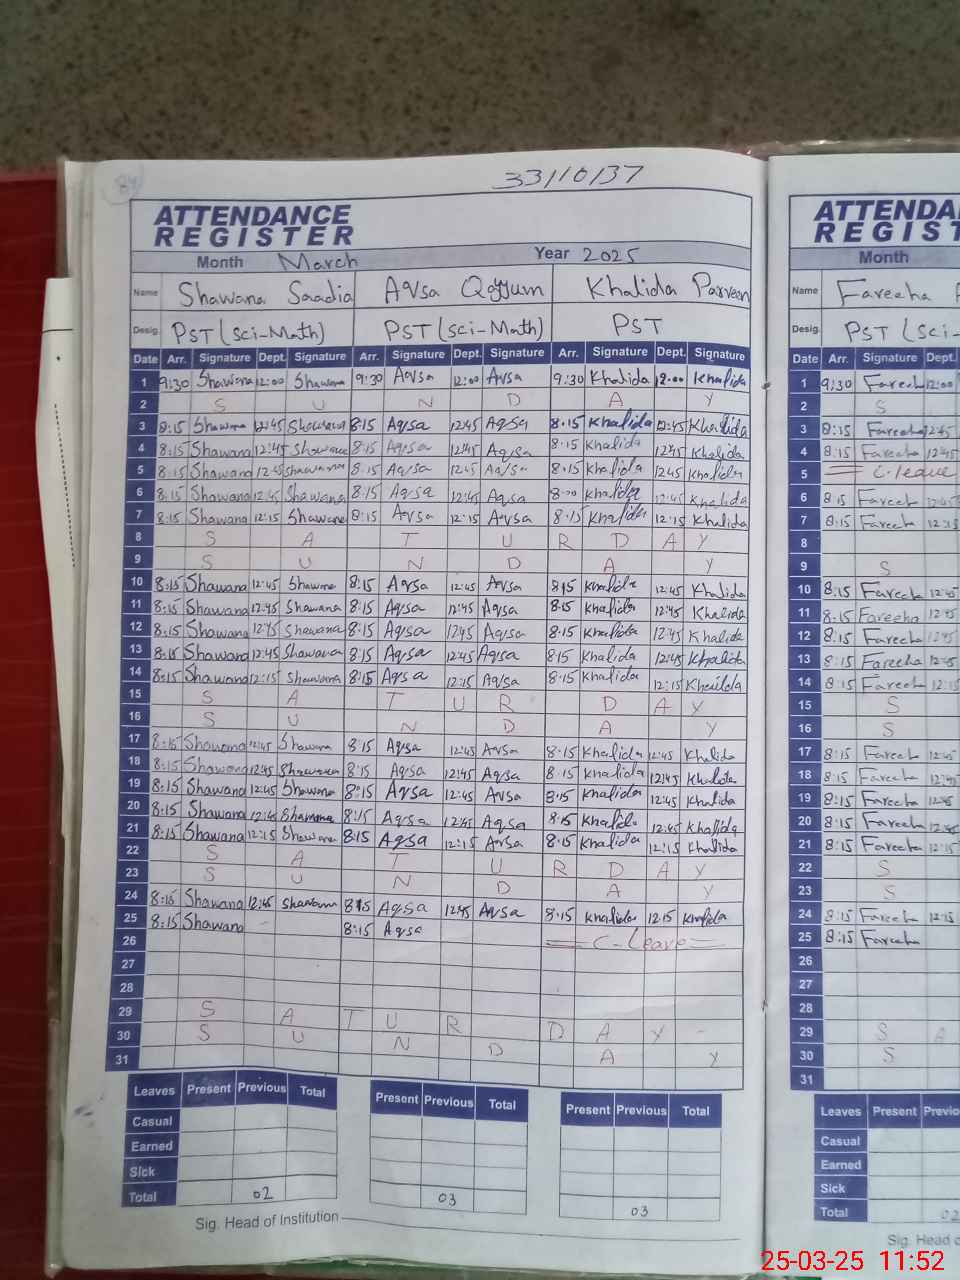 84
33110137
ATTENDANCE
REGISTER
Month March Year 2025
Name Shawana Saadia Aqsa Qayyum Khalida Parveen
Desig. PST (Sci-Math) PST (Sci-Math) PST
Date Arr. Signature Dept. Signature Arr. Signature Dept. Signature Arr. Signature Dept. Signature
1 9:30 Shawana 12:00 Shawana 9:30 Aqsa 12:00 Aqsa 9:30 Khalida 12:00 Khalida
2 S U N D A Y
3 8:15 Shawana 12:45 Shawana 8:15 Aqsa 12:45 Aqsa 8:15 Khalida 12:45 Khalida
4 8:15 Shawana 12:45 Shawana 8:15 Aqsa 12:45 Aqsa 8:15 Khalida 12:45 Khalida
5 8:15 Shawana 12:45 Shawana 8:15 Aqsa 12:45 Aqsa 8:15 Khalida 12:45 Khalida
6 8:15 Shawana 12:45 Shawana 8:15 Aqsa 12:45 Aqsa Khalida 12:45 Khalida
7 8:15 Shawana 12:15 Shawana 8:15 Aqsa 12:15 Aqsa 8:15 Khalida 12:15 Khalida
8 S A T U R D A Y
9 S U N D A Y
10 8:15 Shawana 12:45 Shawana 8:15 Aqsa 12:45 Aqsa 8:15 Khalida 12:45 Khalida
11 8:15 Shawana 12:45 Shawana 8:15 Aqsa 12:45 Aqsa 8:15 Khalida 12:45 Khalida
12 8:15 Shawana 12:45 Shawana 8:15 Aqsa 12:45 Aqsa 8:15 Khalida 12:45 Khalida
13 8:15 Shawana 12:45 Shawana 8:15 Aqsa 12:45 Aqsa 8:15 Khalida 12:45 Khalida
14 8:15 Shawana 12:15 Shawana 8:15 Aqsa 12:15 Aqsa 8:15 Khalida 12:15 Khalida
15 S A T U R D A Y
16 S U N D A Y
17 8:15 Shawana 12:45 Shawana 8:15 Aqsa 12:45 Aqsa 8:15 Khalida 12:45 Khalida
18 8:15 Shawana 12:45 Shawana 8:15 Aqsa 12:45 Aqsa 8:15 Khalida 12:45 Khalida
19 8:15 Shawana 12:45 Shawana 8:15 Aqsa 12:45 Aqsa 8:15 Khalida 12:45 Khalida
20 8:15 Shawana 12:45 Shawana 8:15 Aqsa 12:45 Aqsa 8:15 Khalida 12:45 Khalida
21 8:15 Shawana 12:15 Shawana 8:15 Aqsa 12:15 Aqsa 8:15 Khalida 12:15 Khalida
22 S A T U R D A Y
23 S U N D A Y
24 8:15 Shawana 12:45 Shawana 8:15 Aqsa 12:45 Aqsa 8:15 Khalida 12:15 Khalida
25 8:15 Shawana 8:15 Aqsa C-Leave
26
27
28
29 S A T U R D A Y
30 S U N D A Y
31
Leaves Present Previous Total Present Previous Total Present Previous Total
Casual
Earned
Sick
Total 02 03 03
Sig. Head of Institution
ATTENDA
REGIST
Month
Name Fareeha
Desig. PST (Sci-
Date Arr. Signature Dept.
1 9:30 Fareeha 12:00
2 S
3 8:15 Fareeha 12:45
4 8:15 Fareeha 12:45
5 C-leave
6 8:15 Fareeha 12:45
7 8:15 Fareeha 12:15
8
9 S
10 8:15 Fareeha 12:45
11 8:15 Fareeha 12:45
12 8:15 Fareeha 12:45
13 8:15 Fareeha 12:45
14 8:15 Fareeha 12:15
15 S
16 S
17 8:15 Fareeha 12:45
18 8:15 Fareeha 12:45
19 8:15 Fareeha 12:45
20 8:15 Fareeha 12:45
21 8:15 Fareeha 12:15
22 S
23 S
24 8:15 Fareeha 12:15
25 8:15 Fareeha
26
27
28
29 S A
30 S
31
Leaves Present Previo
Casual
Earned
Sick
Total 02
Sig. Head o
25-03-25 11:52